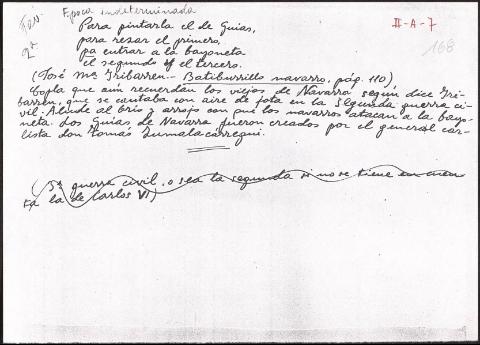 Época indeterminada
II-A-7
168
2ª
Para pintarla el de Guías,
para rezar el primero,
pa entrar a la bayoneta
el segundo y el tercero.
(José Mª Iribarren.- Batiburrillo navarro, pág. 110)
Copla que aún recuerdan los viejos de Navarra según dice Iri-
barren, que se cantaba con aire de jota en la segunda guerra ci-
vil. Alude al brío y arrojo con que los navarros atacan a la bayo-
neta. Los Guías de Navarra fueron creados por el general car-
lista don Tomás Zumalacárregui.
(3ª guerra civil, o sea la segunda si no se tiene en cuen
ta la de Carlos VI)